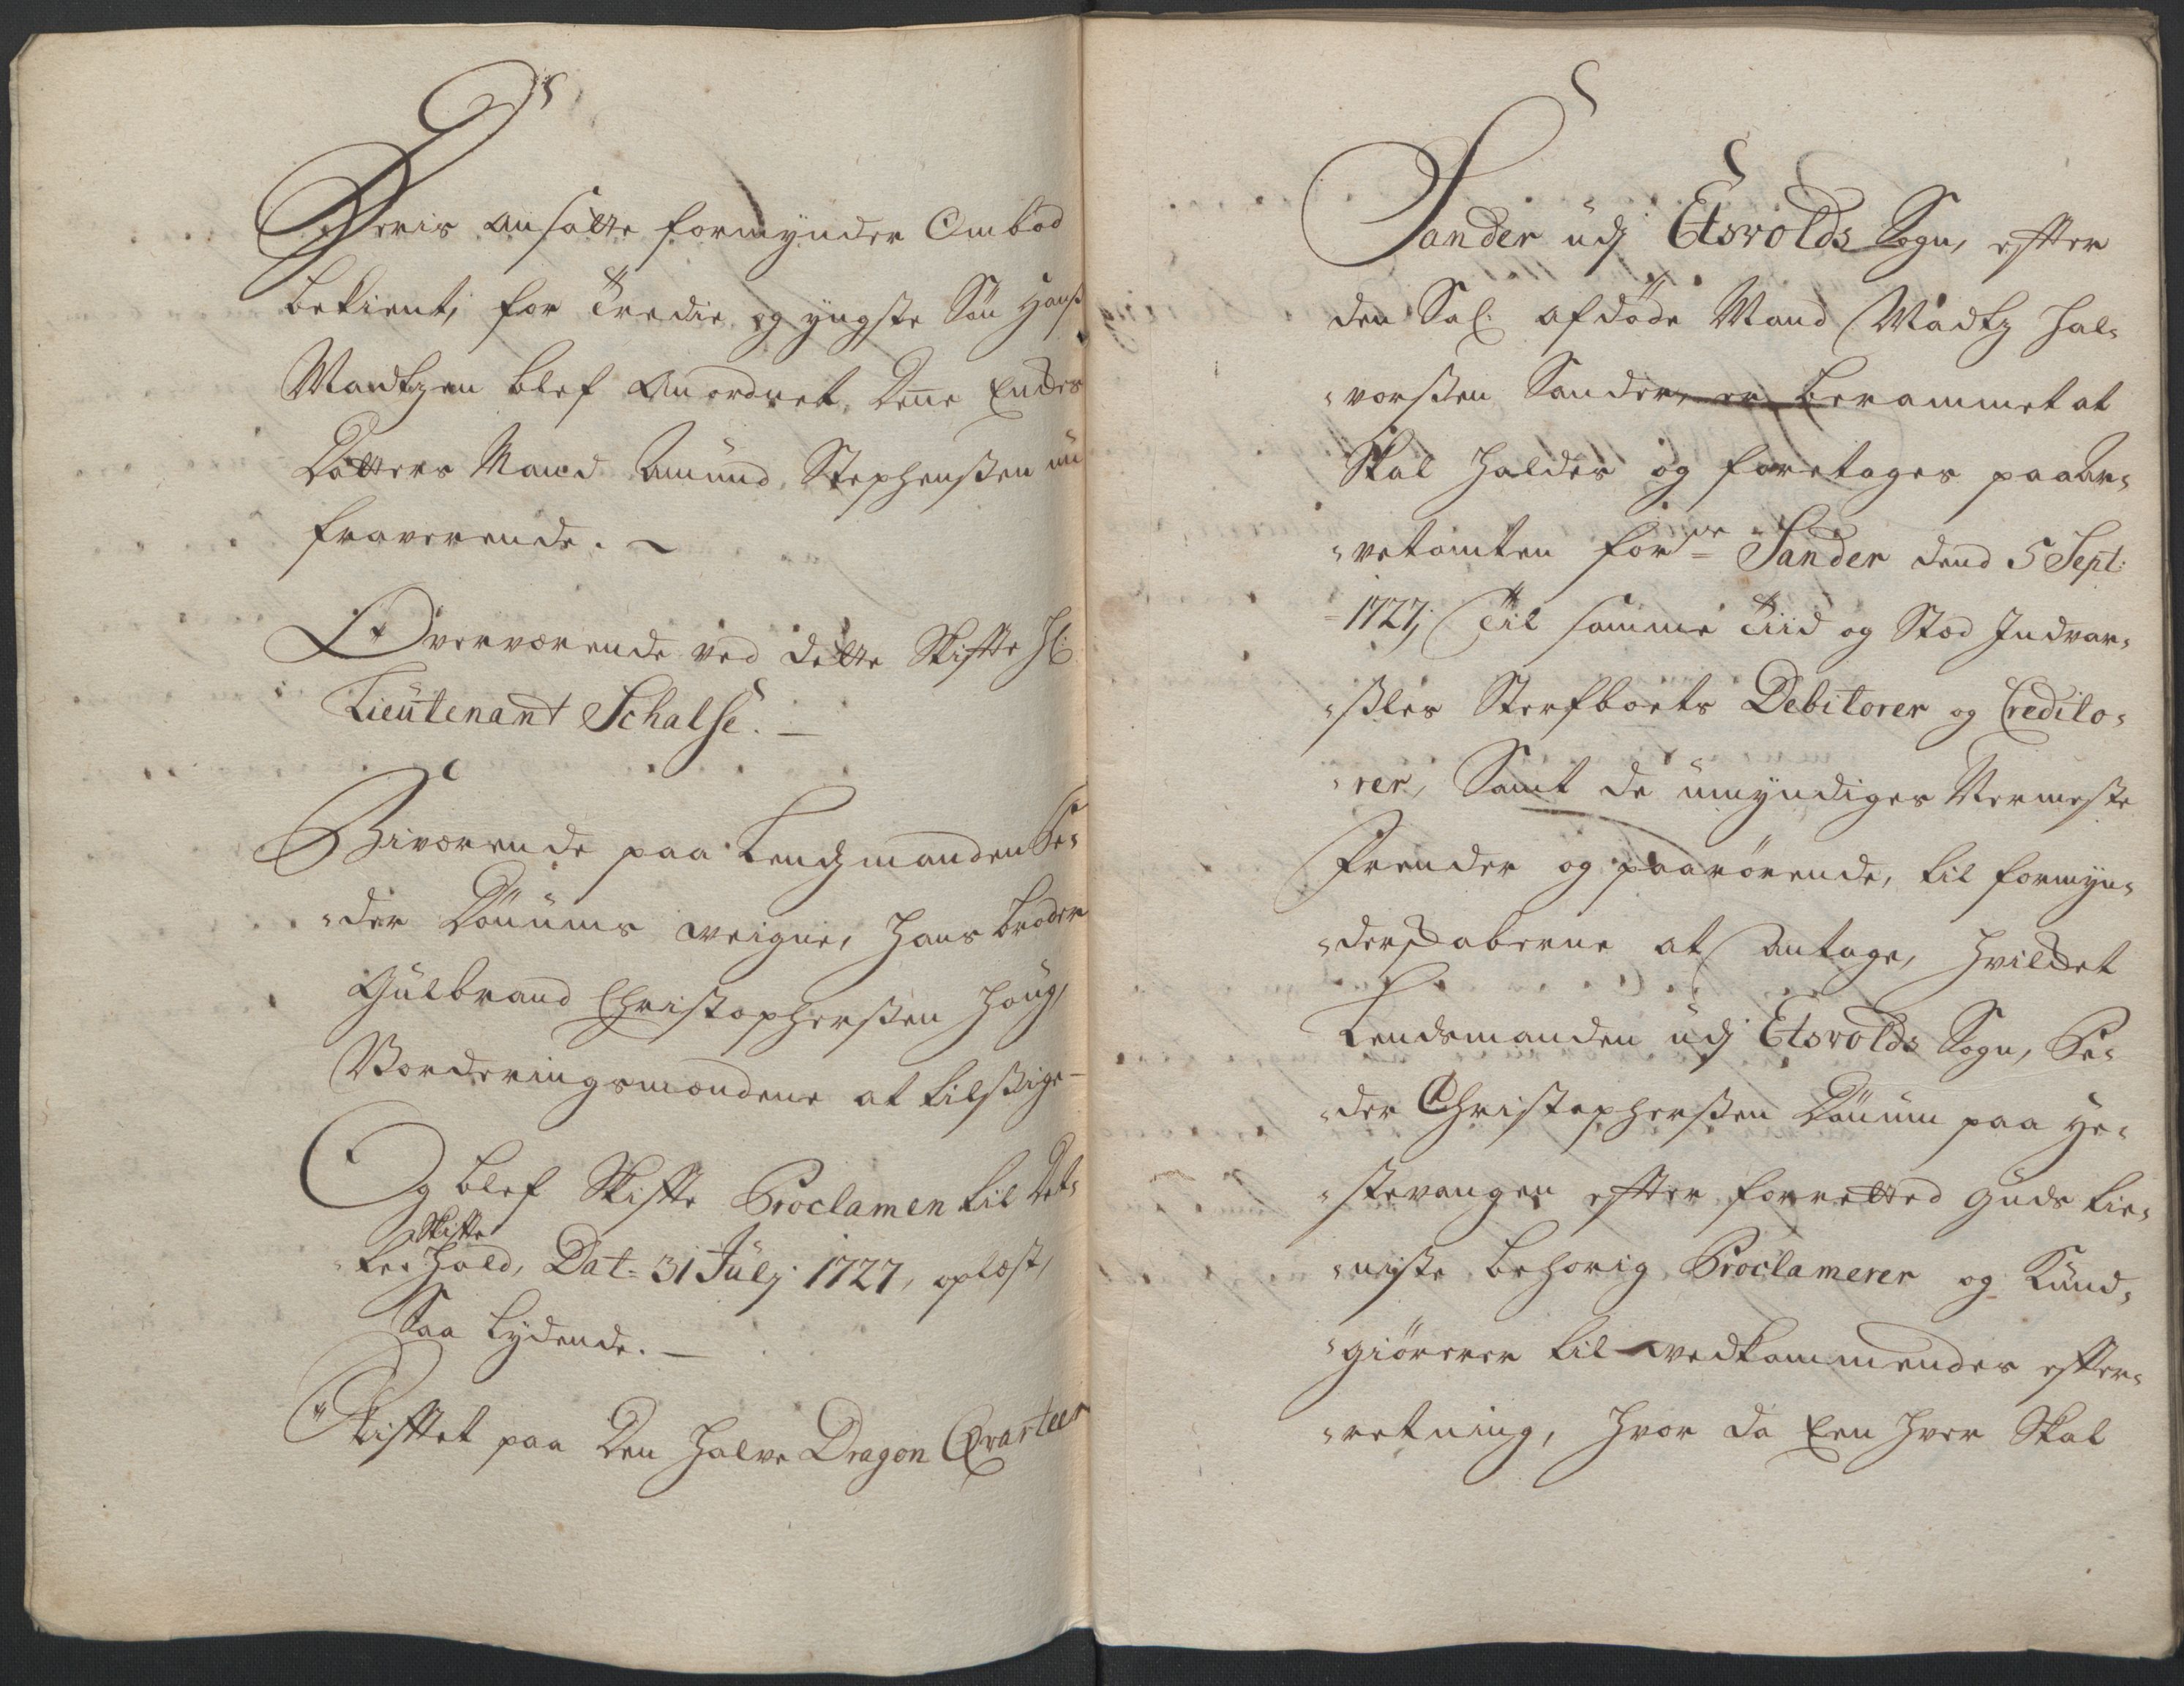 Deris ansatte formynder Ombod
bekient, for Tredie og yngste Søn Hans
Madtzen blef Anordnet, Denne Enckes
Dotters Mand Amund Stephenßen nu
fraverende.
Overværende ved dette Skiffte Hl:
Lieutenant Schalse.
Biværende paa Lendzmanden Pe-
-der Dønnums veigne, Hans broder
Gulbrand Christopherßen Houg,
Vorderingsmændene at tilßige
Og blef Skiffte Proclamen til Det-
Skiffte
te Hold, Dat= 31 Julj 1727, oplæst,
Saa Lydende.
Skifftet paa Den Halve Dragon Qvarteer
Sander udj Etsvolds Sogn, effter
den Sal. afdøde Mand Madtz Hal-
-vorßen Sander, er berammet at
Skal Holdes og foretages paa Ar-
-vetomten forne Sander dend 5 Sept:
1727, Til samme Tiid og Stæd Indvar-
-ßles Sterfboets Debitorer og Credito-
-rer, Samt de umyndiges Nermeste
Frender og paarørende, til formyn-
-derskaberne at Antage, Hvilcket
Lendsmanden udj Etsvolds Sogn, Pe-
-der Christopherßen Dønnum paa He-
-stevangen effter forretted Guds tie-
-niste behørig Proclamerer og Kund-
-giørerer til vedkommendes effter-
-retning, Hvor da Een Hver Skal